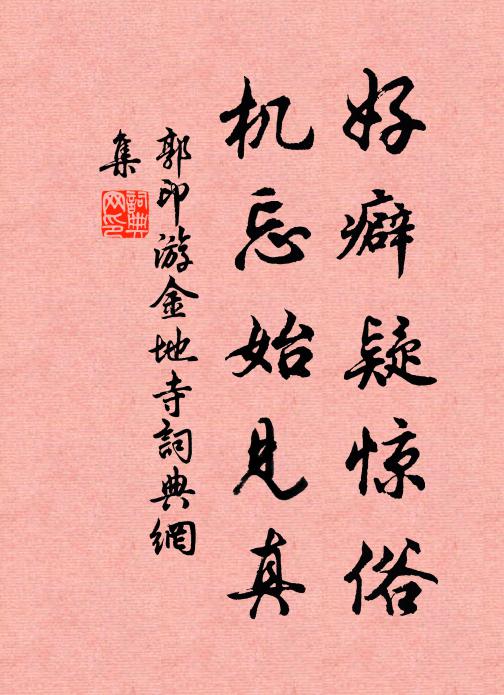 好癖疑惊俗
机忘始见真
郭印游金地寺詞典網
集
詞典
网印